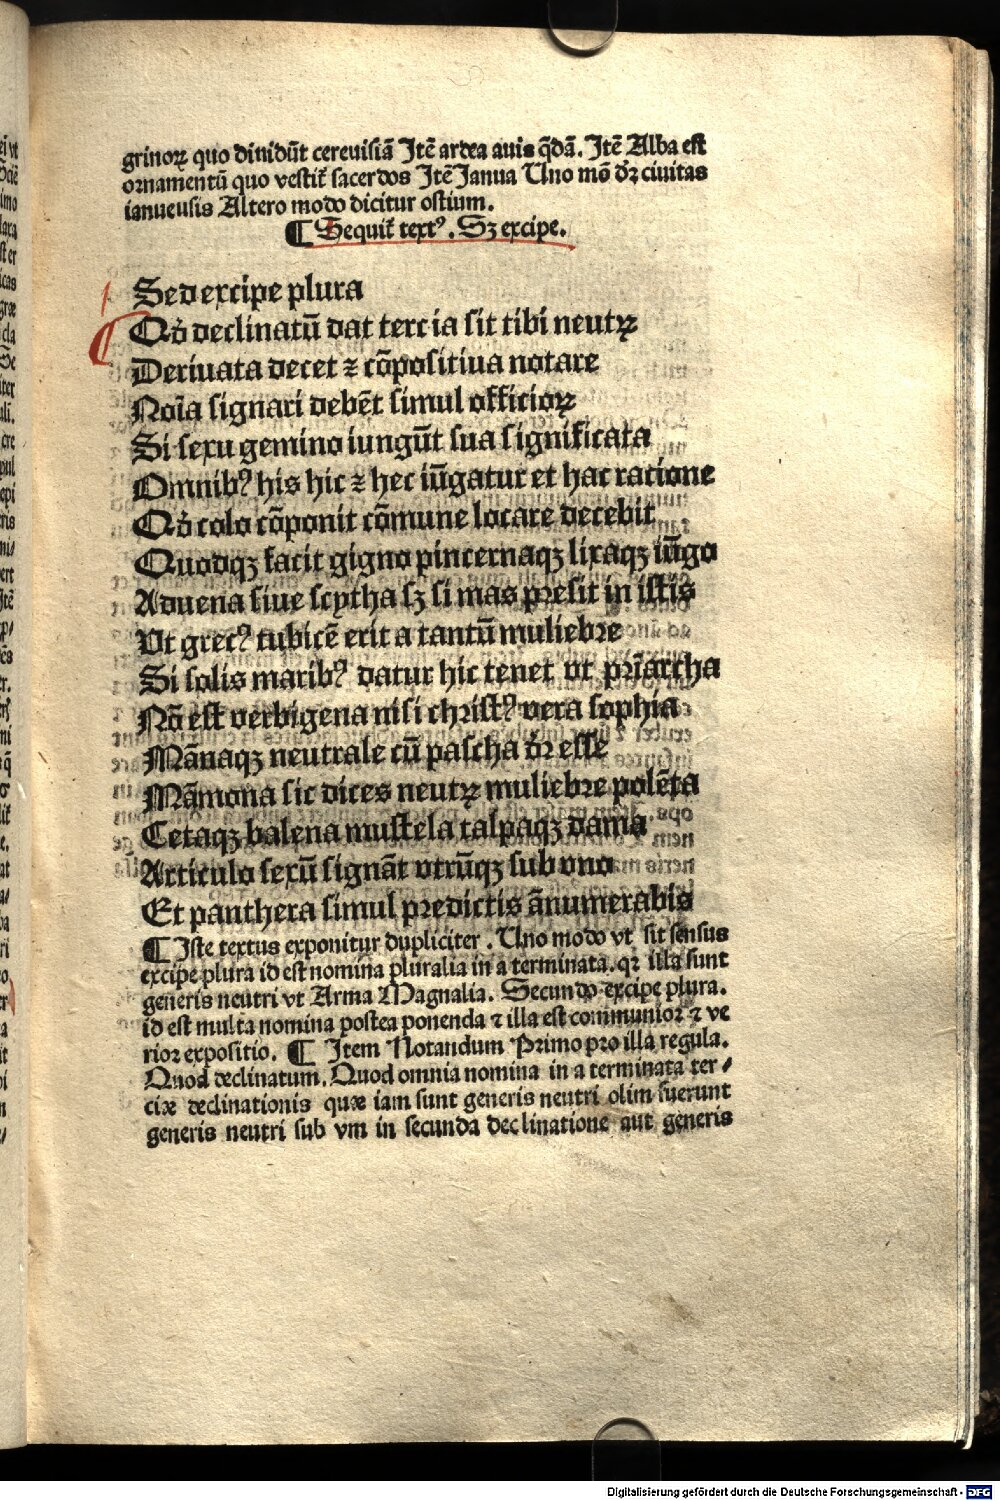 grinoꝝ quo diuidūt cereuisiā Itē ardea auis q̄dā. Itē Alba est
ornamentū quo vestit̄ sacerdos Itē Janua Uno mō dr̄ ciuitas
ianueusis Altero modo dicitur ostium.
¶ Sequit̄ textꝰ. Sꝫ excipe.
Sed excipe plura
Qd̓ declinatū dat tercia sit tibi neutꝝ
Deriuata decet ⁊ cōpositiua notare
Noīa signari debēt simul officioꝝ
Si sexu gemino iungūt sua significata
Omnibꝰ his hic ⁊ hec iūgatur et hac racione
Qd̓ colo cōponit cōmune locare decebit
Quodqꝫ facit gigno pincernaqꝫ lixaqꝫ iūgo
Aduena siue scytha sꝫ si mas presit in istis
Ut grecꝰ tubicē erit a tantū muliebre
Si solis maribꝰ datur hic tenet vt pr̄iarcha
Nō est verbigena nisi christꝰ vera sophia
Mānaqꝫ neutrale cū pascha dr̄ esse
Māmona sic dices neutꝝ muliebre polēta
Cetaqꝫ balena mustela talpaqꝫ dama
Articulo sexū signāt vtrūqꝫ sub vno
Et panthera simul predictis ānumerabis
¶ Iste textus exponitur dupliciter. Uno modo vt sit sensus
excipe plura id est nomina pluralia in a terminata. qr illa sunt
generis neutri vt Arma Magnalia. Secundo excipe plura.
id est multa nomina postea ponenda ⁊ illa est communior ⁊ ve
rior expositio. ¶ Item Notandum Primo pro illa regula.
Quod declinatum. Quod omnia nomina in a terminata ter⸗
ciæ declinationis quæ iam sunt generis neutri olim fuerunt
generis neutri sub vm in secunda declinatione aut generis
Digitalisierung gefördert durch die Deutsche Forschungsgemeinschaft - DFG